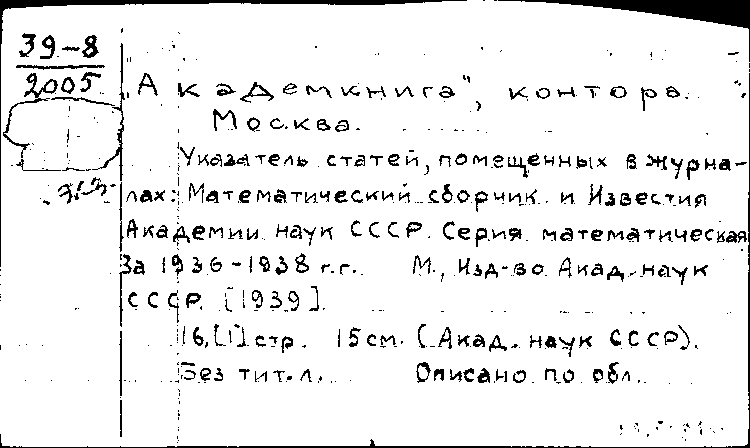 39-8
2005
"Академкнига", контора.
Москва.
Указатель статей, помещенных в журна-
лах: Математический сборник и Известия
Академии наук СССР. Серия математическая
За 1936-1938 г.г. М., Изд-во Акад. наук
СССР. [1939].
16, [1] стр. 15 см. (Акад. наук СССР).
Без тит. л. Описано по обл.